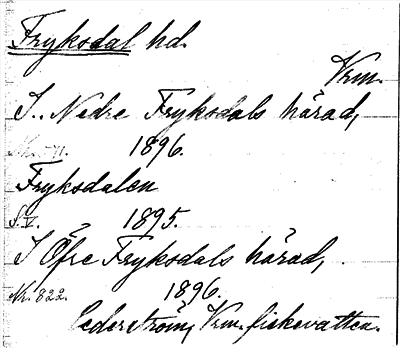 Fryksdal hd.
Vrm.
I. Nedre Fryksdals härad,
1896.
Fryksdalen
S.V. 1895.
I Öfre Fryksdals härad,
Nr. 822. 1896.
Cederström, Vrm. fiskevatten.